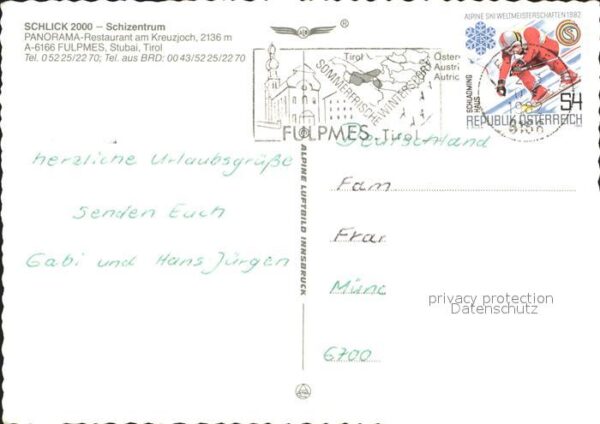 SCHLICK 2000 – Schizentrum
PANORAMA-Restaurant am Kreuzjoch, 2136 m
A-6166 FULPMES, Stubai, Tirol
Tel. 0 52 25/22 70; Tel. aus BRD: 00 43/52 25/22 70
Tirol
SOMMERFRISCHE
WINTERSPORT
FULPMES, Tirol
Öster
Austri
Autric
ALPINE SKI WELTMEISTERSCHAFTEN 1982
SCHLADMING
HAUS
S4
REPUBLIK ÖSTERREICH
6166
herzliche Urlaubsgrüße
senden Euch
Gabi und Hans Jürgen
ALPINE LUFTBILD INNSBRUCK
Deutschland
Fam
Frar
Münc
6700
privacy protection
Datenschutz